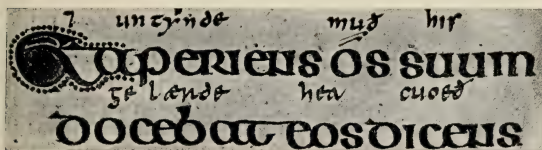 ⁊ untẏnde muð his
Et aperiens ós suum
ge lærde hea cuoeð
docebat eos dicens